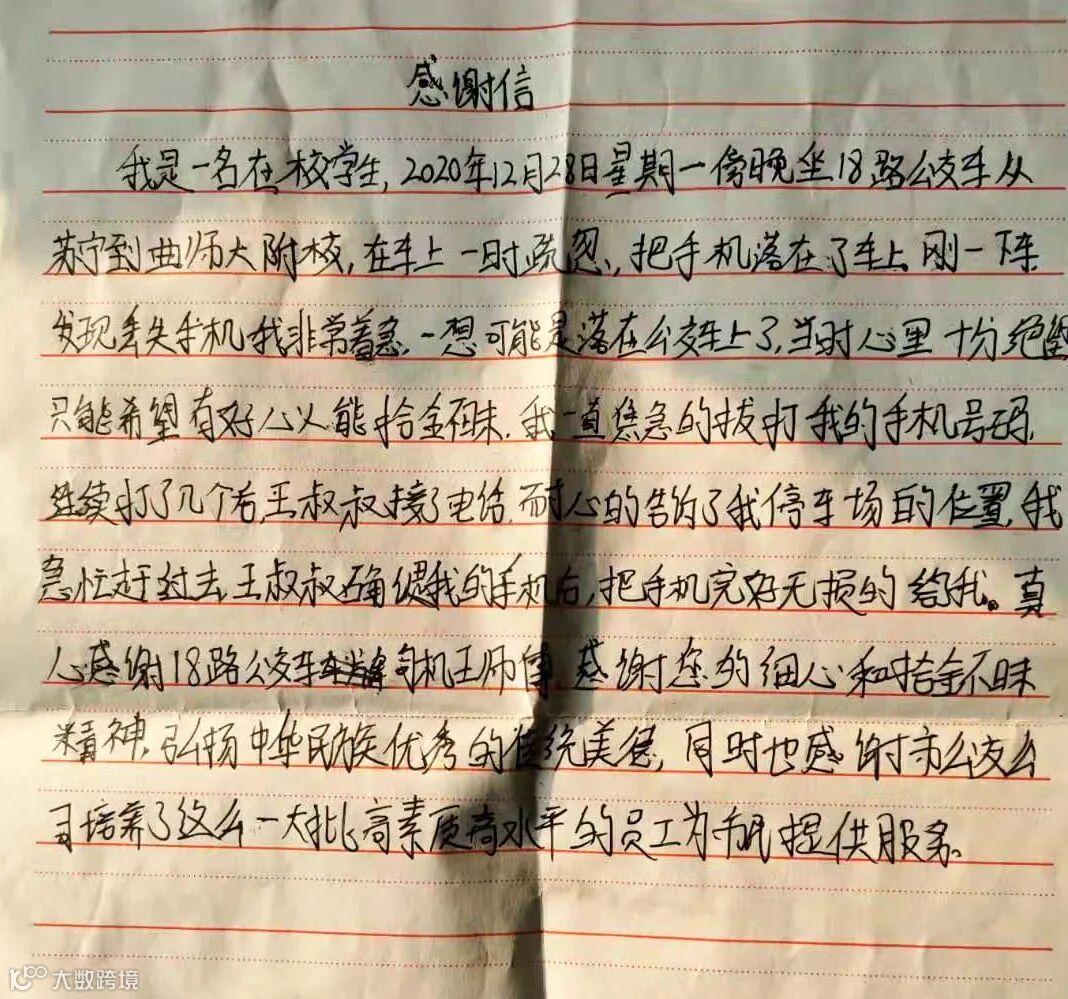 感谢信
我是一名在校学生,2020年12月28日星期一傍晚坐18路公交车从
苏宁到曲师大附校,在车上一时疏忽,把手机落在了车上,刚一下车
发现丢失手机我非常着急,一想可能是落在公交车上了,当时心里十分绝望
只能希望有好心人能拾金不昧.我一直焦急的拔打我的手机号码,
继续打了几个后,王叔叔接了电话,耐心的告的了我停车场的位置,我
急忙赶过去,王叔叔确偍我的手机后,把手机完好无损的给我。真
心感谢18路公交车司机王师傅 感谢您的细心和拾金不昧
精神,弘扬中华民族优秀的传统美德,同时也感谢市公交公
司培养了这么一大批高素质高水平的员工为市民提供服务.
大数跨境